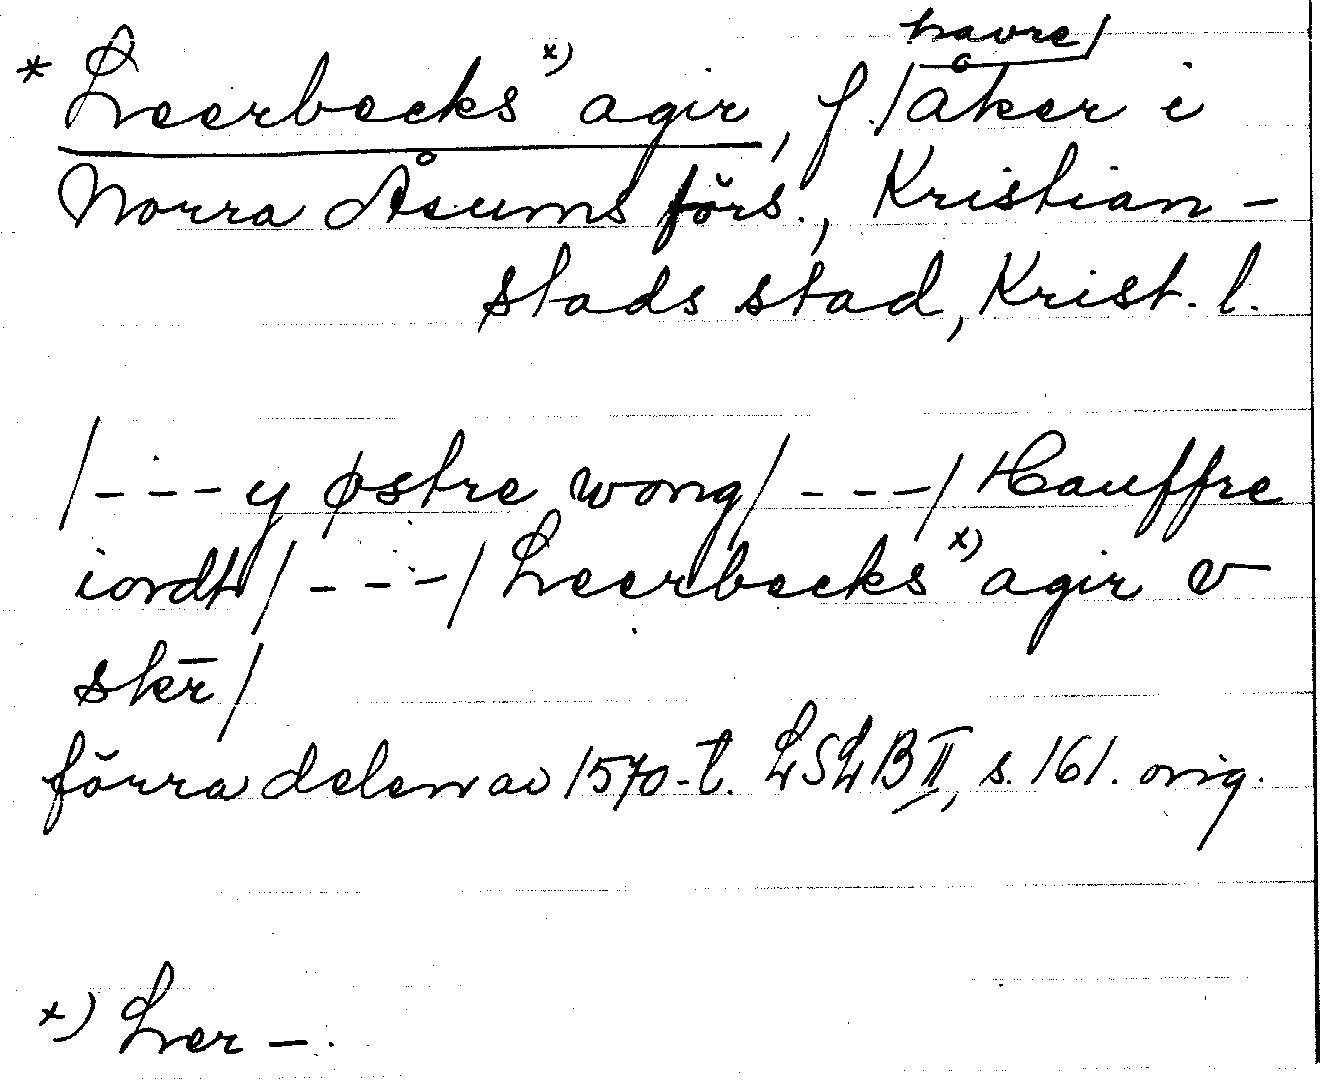 havre/
* Leerbecks x) agir, f. /åker i
Norra Åsums förs., Kristian-
stads stad, Krist. l.
/---y østre wong/---/Hauffre
iordt/---/Leerbecks x) agir v
skr̄/
förra delen av 1570-t. LSLB II, s. 161. orig.
x) Ler-.